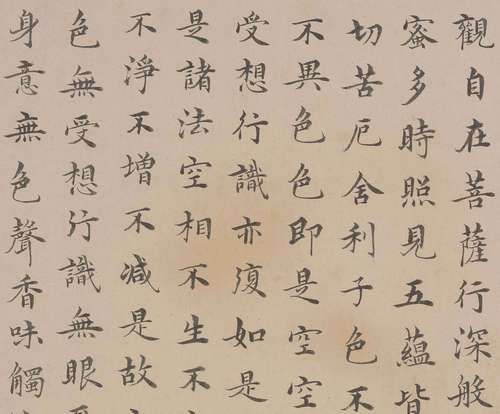 觀自在菩薩行深般
蜜多時照見五蘊皆
切苦厄舍利子色不
不異色色即是空空
受想行識亦復如是
是諸法空相不生不
不淨不增不減是故
色無受想行識無眼
身意無色聲香味觸